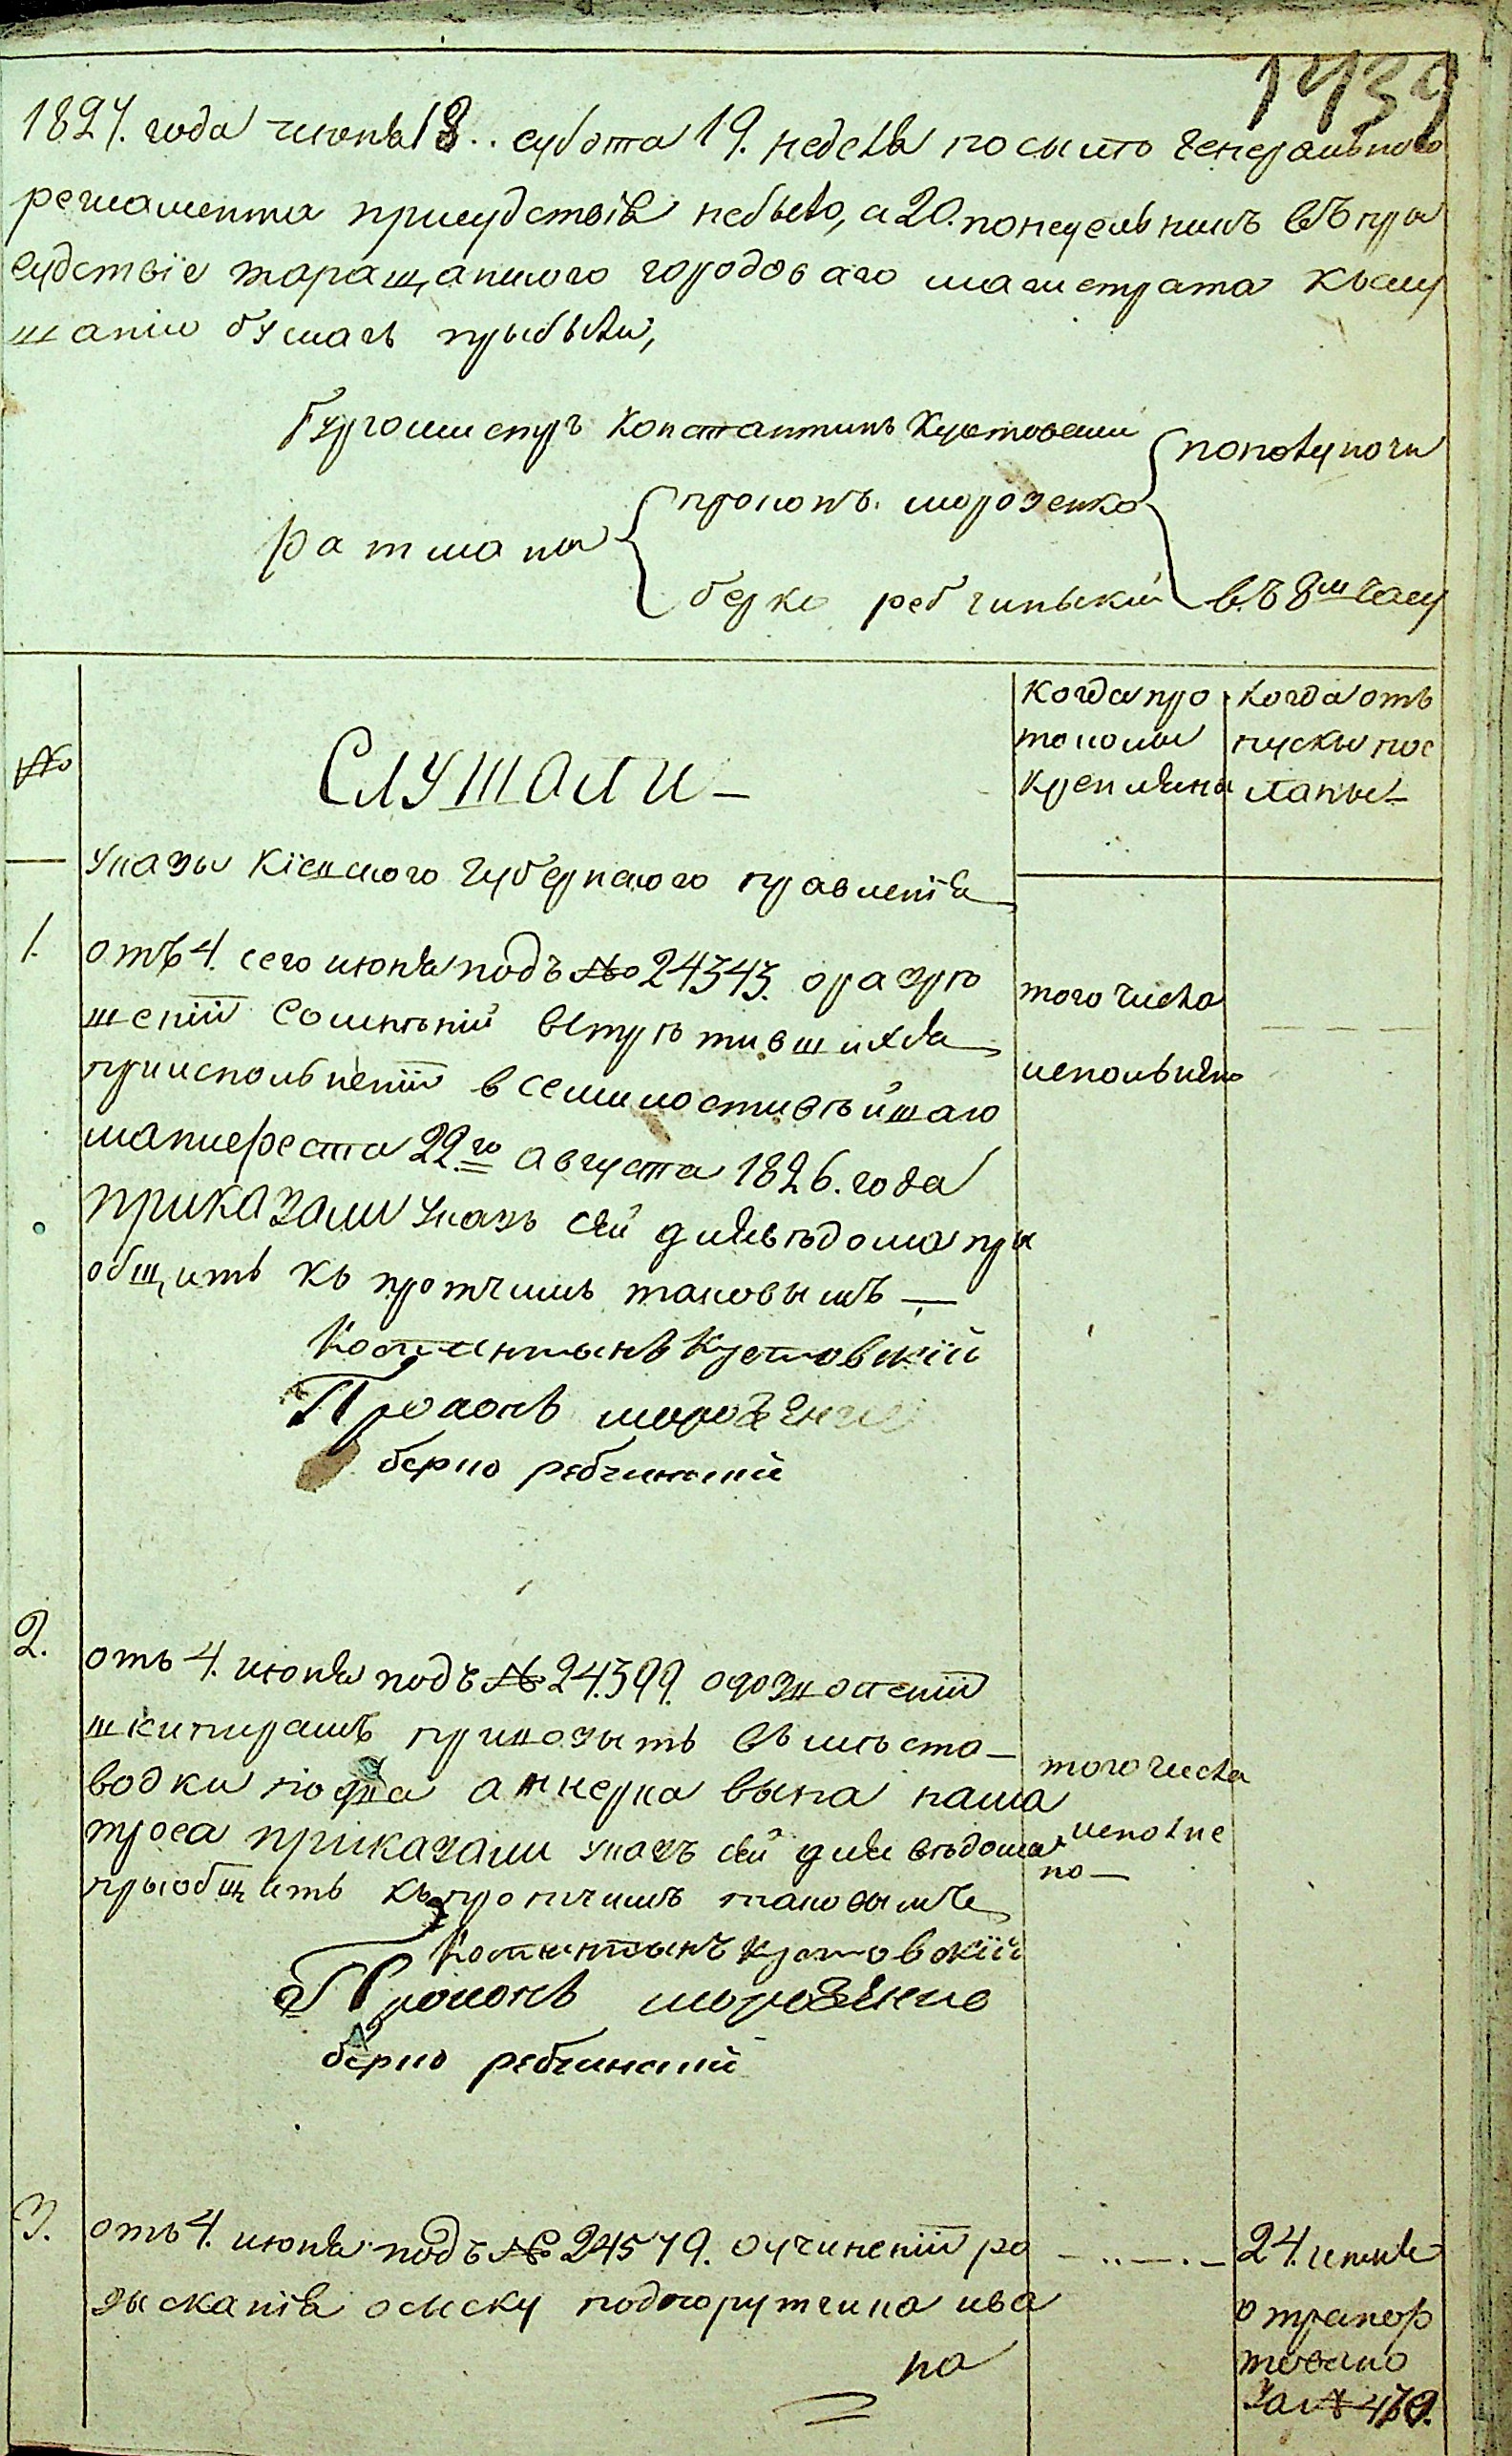 1439
1827. года июня 18.. субота 19. неделя посилѣ Генеральнаго
регламента присудствія небыло, а 20. понедельникъ въ при
судствіе таращанского городоваго магистрата кслу
шанію бумагъ прыбыли,
Бургомистръ Константинъ Кустовскій
пополуночи
ратманы
прокопъ морозенко
берко ребчинский
въ 8м часу
№
Слушали –
когда про
токолы
крепляны
когда отъ
пуски пос
ланы –
Указы Кіевского Губернского правленія
1.
отъ 4. сего июня подъ № 24343. о разре
шеніи сомненій встретившихся
при исполненіи всемилостивейшаго
манифеста 22го августа 1826. года
приказали указъ сей для вѣдома при
общить къ протчимъ таковымъ —
того числа
исполняно
Констынтынъ Кустовскій
Прокопъ морозенко
берко ребчинский
2.
отъ 4. июня подъ № 24399. о дозволеніи
шкипирамъ привозить вместо
водки по два анкерка вына на ма
троса приказали указъ сей для вѣдома
прыобщить къ протчимъ таковымъ
того числа
исполне
но —
Констынтынъ Кустовскій
Прокопъ морозенко
берко ребчинский
3.
отъ 4. июня подъ № 24579. о учиненіи ро
зысканія о сыску подпорутчика ива
на
24. июня
отрапор
товано
за № 479.